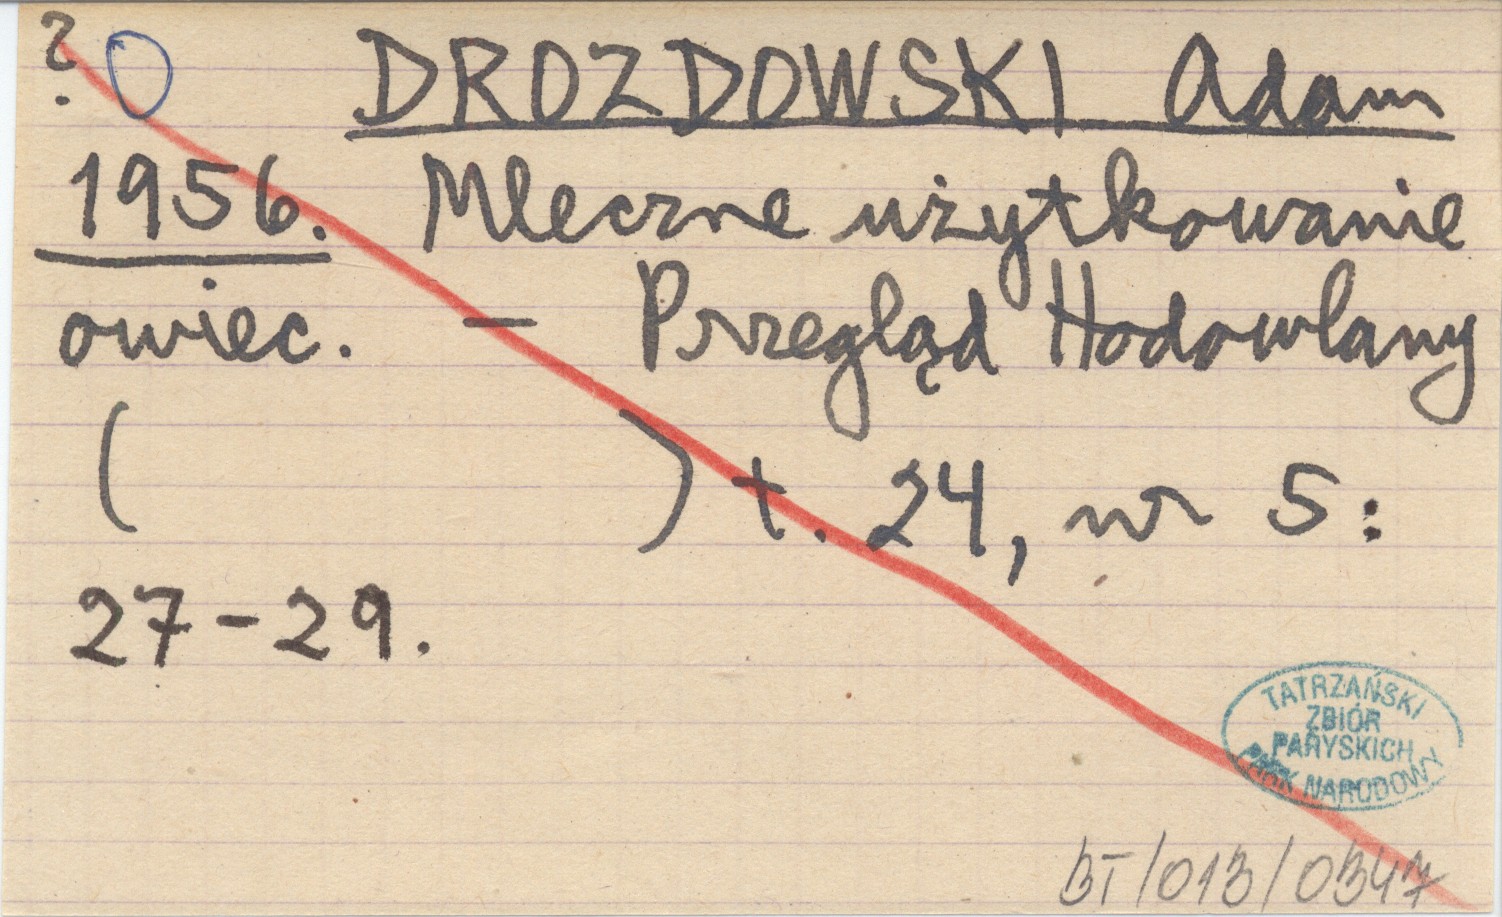 ? O DROZDOWSKI Adam
1956. Mleczne użytkowanie
owiec. – Przegląd Hodowlany
( ) t. 24, nr 5:
27-29.
TATRZAŃSKI
ZBIÓR
PARYSKICH
PARK NARODOWY
BT/013/0347